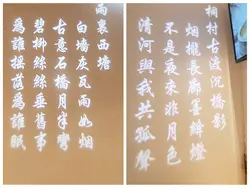 雨裏西塘
白墙灰瓦雨如烟
古意石橋月半彎
碧柳絲絲垂舊事
為誰搖落為誰眠
桐村古渡沉橋影
烟攏長廊篝絳燈
不是夜來非月色
清河與我共孤聲